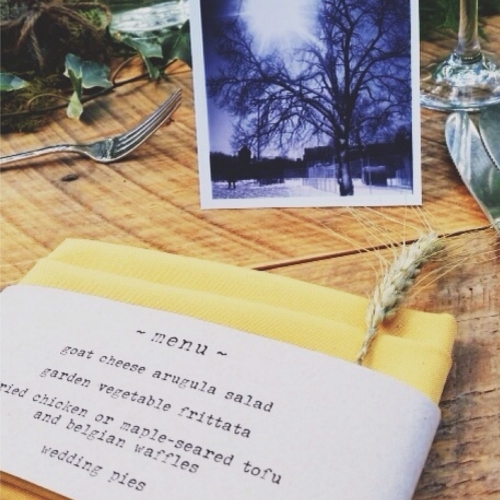 ~ menu ~
goat cheese arugula salad
garden vegetable frittata
chicken or maple-seared tofu
and belgian waffles
wedding pies